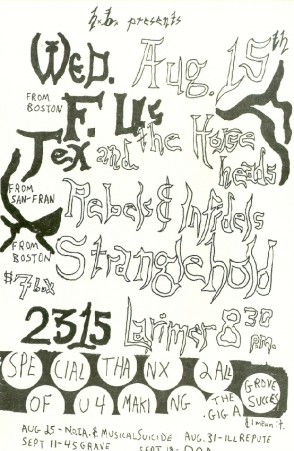 presents
WED. Aug. 15th
FROM BOSTON
F. Us
Tex and the Horse heads
FROM SAN-FRAN
Rebels & Infidels
FROM BOSTON
Stranglehold
$7 bux
2315 Larimer 8 30 PM.
SPE CIAL THA NX 2 ALL
OF U 4 MAKI NG THE .GIG A GROVE SUCCES
& I mean it.
AUG 25 - N.O.I.A. & MUSICAL SUICIDE AUG. 31 - ILL REPUTE
SEPT 11 - 45 GRAVE SEPT 18 - D.O.A.